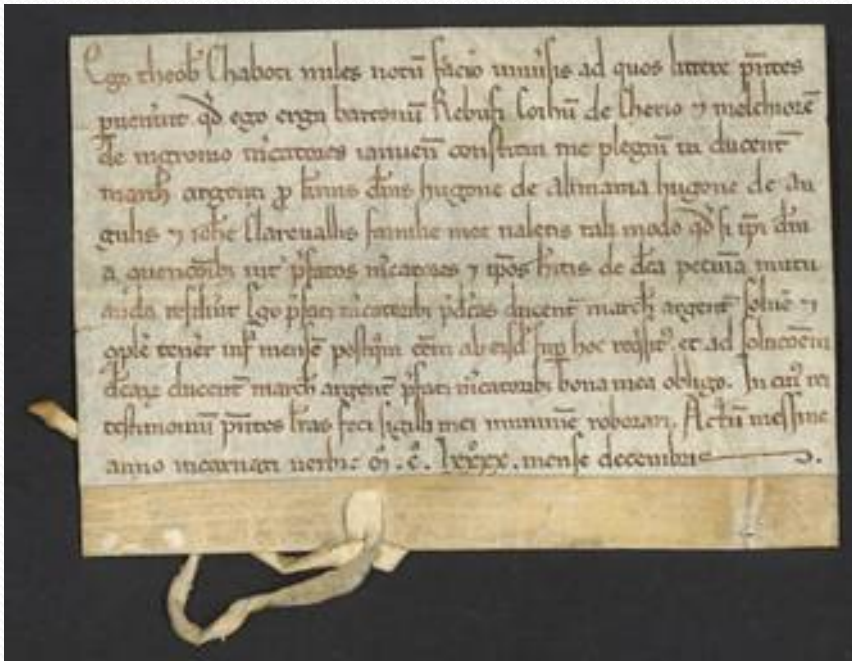 Ego theob' Chaboti miles notū facio uniūsis ad quos littere p̄ntes
puenīnt qd̄ ego erga bartonū Rebufi Corbū de Cherio ⁊ melchiorē
de nigrono m̄catores ianuen̄ constitui me plegiū in ducent̄
march̄ argenti p dn̄is hugone de alimania hugone de
gulis ⁊ ioh̄e Clareuallis familie mee ualetis tali modo qd̄ si ip̄i
p̄fatos m̄catores ⁊ ip̄os de dc̄a pecunia mutu
anda Ego p̄fatis m̄catoribꝫ p̄dc̄as ducent̄ march̄ argent̄ soluē ⁊
tener̄ inf̄ mensē postq̄m ab eisd̄ sup hoc req̄sitꝰ. et ad solucōem
ducent̄ march̄ argent̄ p̄fatis m̄catoribꝫ bona mea obligo. In cuiꝰ rei
testimoniū p̄ntes l̄ras feci sigilli mei munimīe roborari. Actū messine
anno incarnati uerbi mͦ . cͦ . lxxxxͦ . mense decembri .